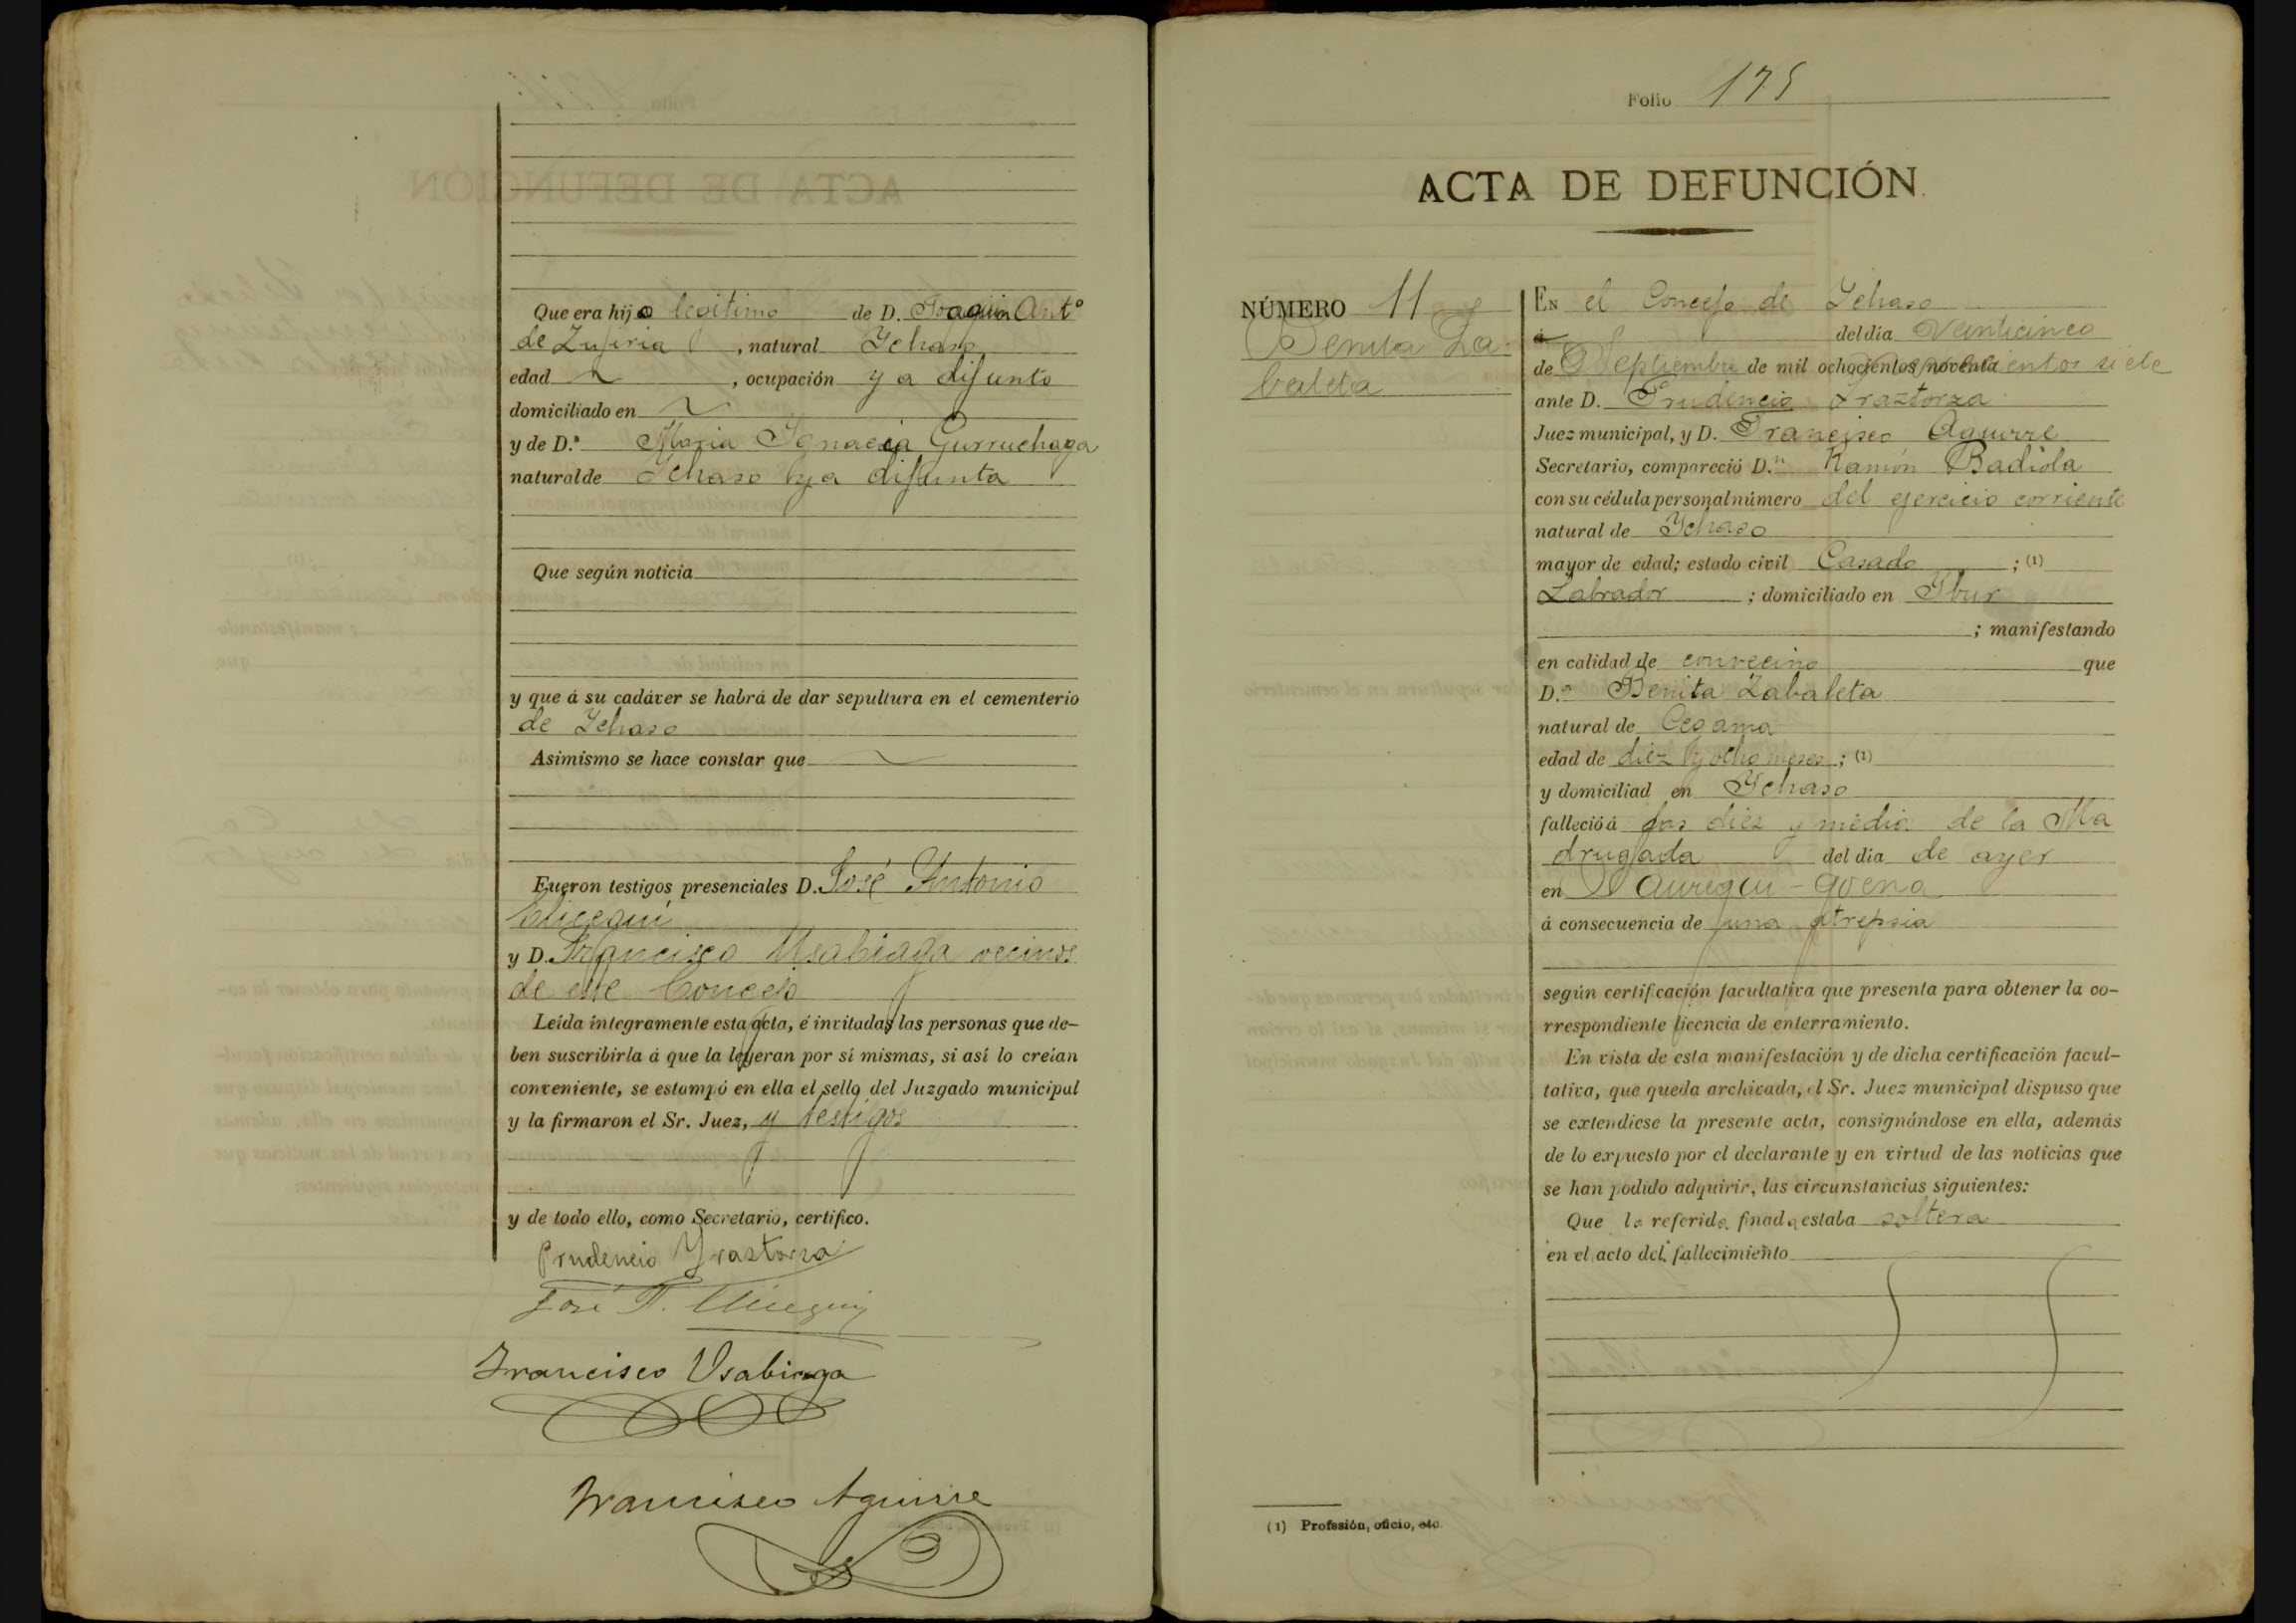 Que era hijo legitimo de D. Joaquin Antº
de Zufiria, natural Ychaso
edad, ocupación ya difunto
domiciliado en
y de D.ª Maria Ignacia Gurruchaga
natural de Ychaso ya difunta
Que según noticia
y que á su cadáver se habrá de dar sepultura en el cementerio
de Ychaso
Asimismo se hace constar que
Fueron testigos presenciales D. José Antonio
y D. Francisco Usabiaga vecinos
de este Concejo
Leída íntegramente esta acta, é invitadas las personas que de-
ben suscribirla á que la leyeran por sí mismas, si así lo creían
conveniente, se estampó en ella el sello del Juzgado municipal
y la firmaron el Sr. Juez, y testigos
y de todo ello, como Secretario, certifico.
Prudencio Yraztorza
José A.
Francisco Usabiaga
Francisco Aguirre
Folio 175
ACTA DE DEFUNCIÓN.
NÚMERO 11
Benita Za-
baleta
En el Concejo de Ychaso
á del día Veinticinco
de Septiembre de mil ochocientos noventa novecientos siete
ante D. Prudencio Yraztorza
Juez municipal, y D. Francisco Aguirre
Secretario, compareció D.n Ramón Badiola
con su cédula personal número del ejercicio corriente
natural de Ychaso
mayor de edad; estado civil Casado ; (1)
Labrador ; domiciliado en Ybur
; manifestando
en calidad de convecino que
D.ª Benita Zabaleta
natural de Cegama
edad de diez y ocho meses ; (1)
y domiciliad en Ychaso
falleció á las diez y media de la Ma
drugada del día de ayer
en Jauregui-goena
á consecuencia de una atrepsia
según certificación facultativa que presenta para obtener la co-
rrespondiente licencia de enterramiento.
En vista de esta manifestación y de dicha certificación facul-
tativa, que queda archivada, el Sr. Juez municipal dispuso que
se extendiese la presente acta, consignándose en ella, además
de lo expuesto por el declarante y en virtud de las noticias que
se han podido adquirir, las circunstancias siguientes:
Que la referida finada estaba soltera
en el acto del fallecimiento
(1) Profesión, oficio, etc.